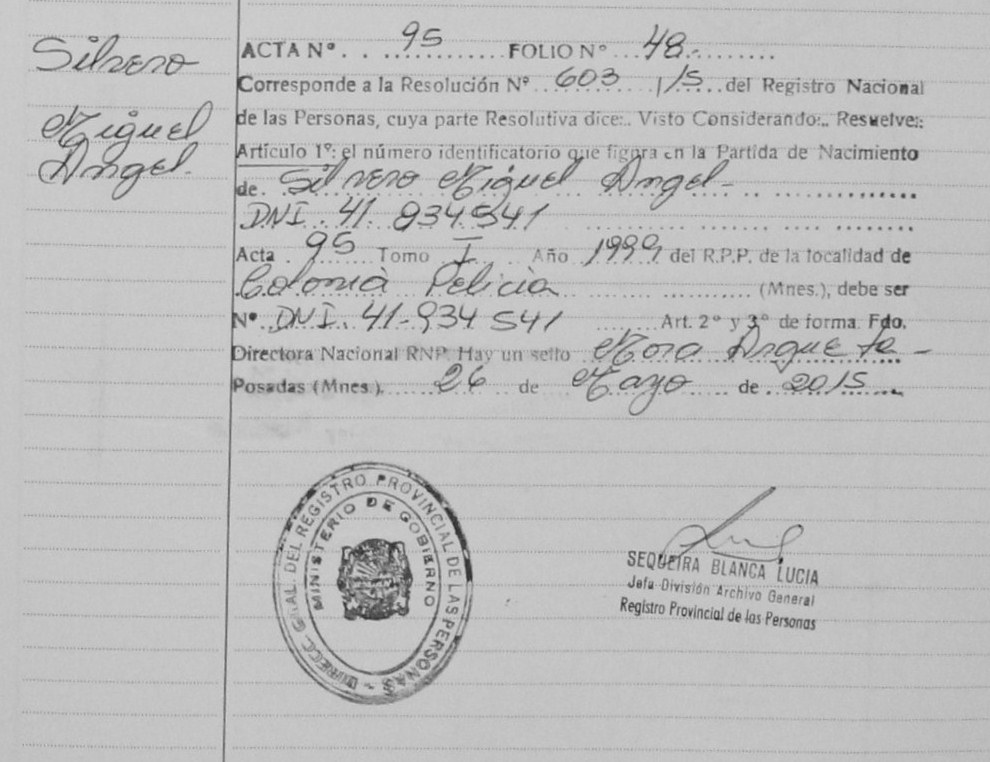 Silvero
Miguel
Angel.
ACTA Nº. . . 95 . . . FOLIO Nº . . . 48.-
Corresponde a la Resolución Nº . . . 603 . . . 1/5 . . . del Registro Nacional
de las Personas, cuya parte Resolutiva dice:.. Visto Considerando:.. Resuelve:
Artículo 1º: el número identificatorio que figura en la Partida de Nacimiento
de . Silvero Miguel Angel.-
DNI. 41.934.541
Acta . 95 . . . Tomo I . . . Año . 1999 del R.P.P. de la localidad de
Colonia Policia . . . (Mnes.), debe ser
Nº . DNI. 41-934 541 . . . Art. 2º y 3º de forma. Fdo.
Directora Nacional RNP. Hay un sello . Mora Arqueta.-
Posadas (Mnes.). . . 26 . . de . . Mayo . . . de . 2015
DIRECC. GRAL. DEL REGISTRO PROVINCIAL DE LAS PERSONAS -
MINISTERIO DE GOBIERNO
SEQUEIRA BLANCA LUCIA
Jefa División Archivo General
Registro Provincial de las Personas